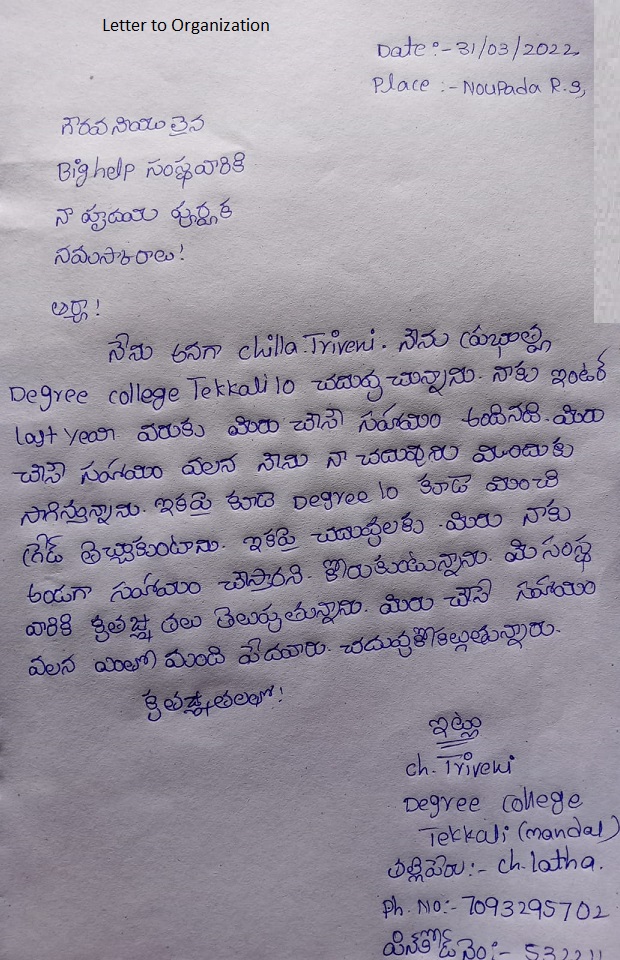 Letter to Organization
Date :- 31/03/2022
Place :- Noupada R.S,
గౌరవనీయులైన
Bighelp సంస్థవారికి
నా హృదయ పూర్వక
నమస్కారాలు!
అర్యా!
నేను అనగా chilla.Triveni. నేను
Degree college Tekkali lo చదువు చున్నాను. నాకు ఇంటర్
last year వరుకు మీరు చేసే సహాయం అందినది. మీరు
చేసే సహాయం వలన నేను నా చదువును ముందుకు
సాగిస్తున్నాను. ఇకపై కూడా Degree lo కూడా మంచి
గ్రేడ్ తెచ్చుకుంటాను. ఇకపై చదువులకు మీరు నాకు
అండగా సహాయం చేస్తారని కోరుకుంటున్నాను. మీ సంస్థ
వారికి కృతజ్ఞతలు తెలుపుతున్నాను. మీరు చేసే సహాయం
వలన ఎంతో మంది పేదవారు. చదువుకోకల్గుతున్నారు.
కృతజ్ఞతలతో!
ఇట్లు
ch. Triveni
Degree college
Tekkali (mandal)
తల్లిపేరు:- ch.latha.
Ph. No:- 7093295702
పిన్‌కోడ్ నెం:- 532211